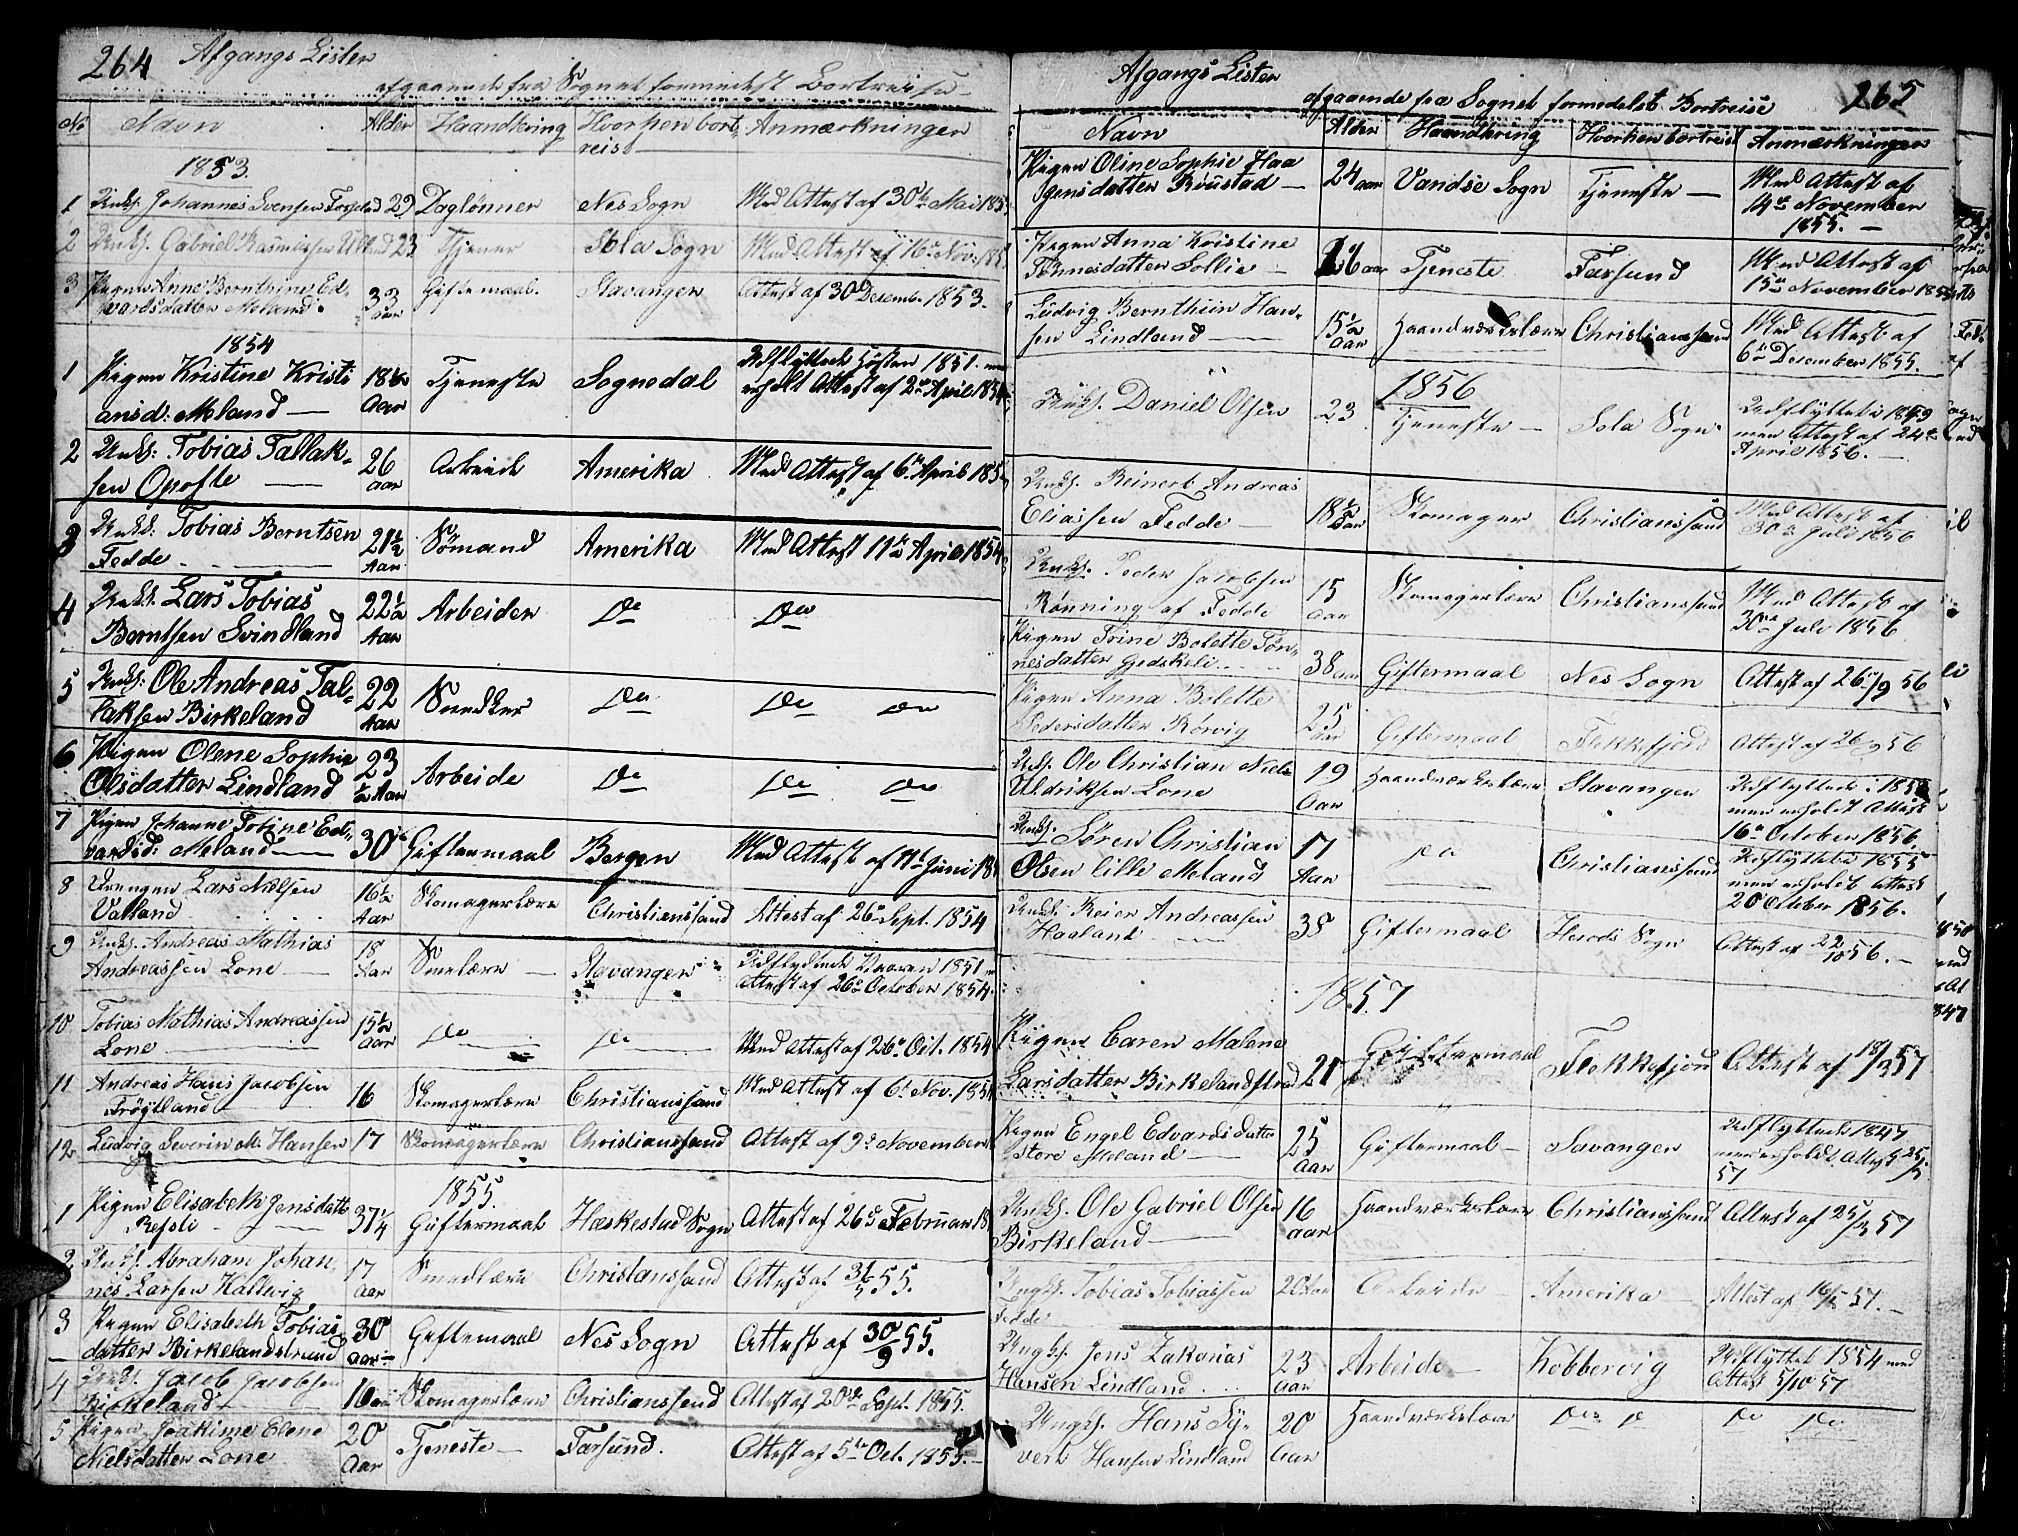 264 Afgangs Lister
afgaaende fra Sognet formedelst Bortreise
No Navn Alder Haandtering Hvorhen bort- Anmærkninger
reist
1853.
1 Ungk. Johannes Svensen 29 Daglønner Nes Sogn Med Attest af 30te Mai 1853
2 Ungk. Gabriel Rasmussen Ulland 23 Tjener Sola Sogn Med Attest af 16de Nov. 185
3 Pigen Anne Berntine Ed- 33 Giftemaal. Stavanger Attest af 30 Desemb. 1853.
vardsdatter Meland. aar
1854
1 Pigen Kristine Kristi 18½ Tjeneste Sognedal Udflyttede Høsten 1851. men
ansd: Meland — Aar erholdt Attest af 2den April 1854
2 Ungk: Tobias Tallak- 26 Arbeide Amerika Med Attest af 6te April 185
sen Opofte — aar
3 Ungk. Tobias Berntsen 21½ Sømand Amerika Med Attest 11te April 1854
Fedde — Aar
4 Ungk. Lars Tobias 22½ Arbeider Do Do
Berntsen Svindland Aar
5 Ungk: Ole Andreas Tal- 22 Snedker Do Do Do
laksen Birkeland Aar
6 Pigen Olene Sophie 23 Arbeide Do Do Do
Olsdatter Lindland ½ Aar
7 Pigen Johanne Tobine Ed- 30 Giftermaal Bergen Med Attest af 11te Juni 18
vardsd: Meland —
8 Drengen Lars Nilsen 16½ Skomagerlære Christianssand Attest af 26de Sept. 1854
Valland Aar
9 Ungk. Andreas Mathias 18 Smelære — Stavanger Udflyttede Vaaren 1851. m
Andreassen Lone — Aar Attest af 26de October 1854.
10 Tobias Mathias Andreassen 15½ Do Do Med Attest af 26de Oct. 1854
Lone — aar
11 Andreas Hans Jacobsen 16 Skomagerlære Christianssand Med Attest af 6te Nov. 1854
Frøytland —
12 Ludvig Severin M. Hansen 17 Skomagerlære Christianssand Attest af 9de November
1855.
1 Pigen Elisabeth Jensdatt 37¼ Giftermaal Heskestad Sogn Attest af 26de Februar 18
Refsti
2 Ungk. Abraham Johan- 17 Smedlære Christianssand Attest af 31/5 55.
nes Larsen Kallevig Aar
3 Pigen Elisabeth Tobias 30 Giftemaal Nes Sogn Attest af 30/9 55.
datter Birkelandstrand aar
4 Ungk. Jacob Jacobsen 16 aar Skomagerlære Christianssand Attest af 20de Sept. 1855.
Birkeland
5 Pigen Joakime Elene 20 Tjeneste — Farsund. Attest af 5te Oct. 1855.
Nielsdatter Lone Aar
Afgangs Lister
afgaaende fra Sognet formedelst Bortreise 265
Navn Alder Haandtering Hvorhen bortreist Anmærkninger
Pigen Oline Sophie Haa 24 aar Vandse Sogn Tjeneste — Med Attest af
gensdatter Røustad — 14de November
1855. —
Pigen Anna Kristine 16 aar Tjeneste Farsund Med Attest af
Tønnesdatter Sollie — 15de November 1855
Ludvig Bernthun Han- 15½ Haandværkslære Christianssand Med Attest af
sen Lindland — Aar 6te Desember 1855.
1856
Ungk. Daniel Olsen 23 Tjeneste — Sola Sogn Udflyttede 1849
men Attest af 24de
April 1856. —
Ungk. Reinert Andreas
Eliassen Fedde — 18½ aar Skomager Christianssand Med Attest af
30te Juli 1856
Ungk. Peder Jacobsen 15 Skomagerlære Christianssand Med Attest af
Rønning af Fedde aar 30te Juli 1856
Pigen Trine Bolette Tøn- 38 aar Giftermaal Nes Sogn Attest af 26/9 56
nesdatter Gjedskeli
Pigen Anna Bolette 25 Giftermaal Flekkefjord Attest af 26/9 56
Pedersdatter Rørvig aar
Ungk. Ole Christian Niels 19 Haandværkslære Stavanger Udflyttede i 185
Uldriksen Lone Aar men erholdt Attest
16de October 1856.
Ungk. Søren Christian 17 Do Christianssand Udflyttede 1855
Olsen lille Meland Aar men erholdt Attest
20 October 1856.
Ungk. Reier Andreassen 38 Giftermaal Herods Sogn Attest af 22/10 56. —
Haaland —
1857
Pigen Caren Malene 21 Giftermaal Flekkefjord Attest af 18/3 57
Larsdatter Birkelandstrad
Pigen Engel Edvardsdatter 25 Giftermaal — Savanger Udflyttede 1847
store Meland — Aar men erholdt Attest 25/
57
Ungk. Ole Gabriel Olsen 16 Haandværkslære Christianssand Attest af 25/3 57
Birkeland — aar
Ungk. Tobias Tobiassen 20 aar Arbeide Amerika — Attest af 16/ 57. —
Fedde
Ungk. Jens Zakarias 23 Arbeide — Kobbervig Udflyttet 1854 med
Hansen Lindland aar Attest 5/10 57
Ungk. Hans Sy- 20 Haandværkslære Do Do Do Do
vert Hansen Lindland Aar